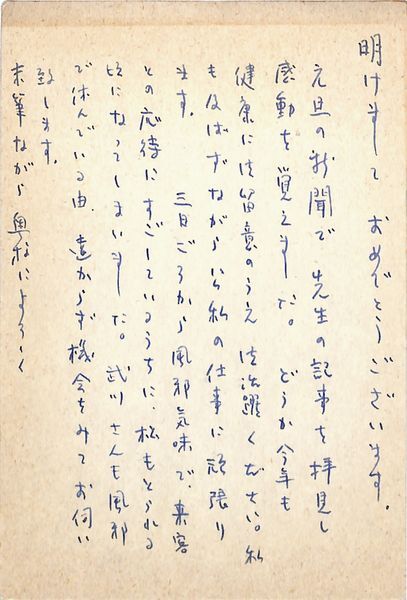 明けまして おめでとうございます。
元旦の新聞で 先生の記事を拝見し
感動を覚えました。 どうか今年も
健康に御留意のうえ 御活躍ください。私
も及ばずながら 私の仕事に頑張り
ます。 三日ごろから風邪気味で、来客
との応待にすごしているうちに、松もとられる
頃になってしまいました。 武川さんも風邪
で休んでいる由、遠からず機会をみてお伺い
致します。
末筆ながら 奥様によろしく